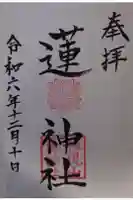 奉拝
蓮神社
令和六年十二月十日